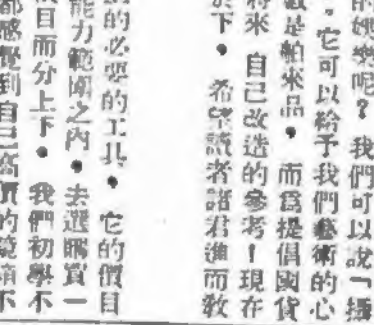 的娛樂呢？ 我們可以說「攝
。它可以給予我們藝術的心
數是舶來品。 而為提倡國貨
將來 自己改造的參考！現在
於下。 希望讀者諸君進而教
的必要的工具。 它的價目
能力範圍之內。去選購買一
價目而分上下。 我們初學不
都感覺到自己高價的鏡頭不